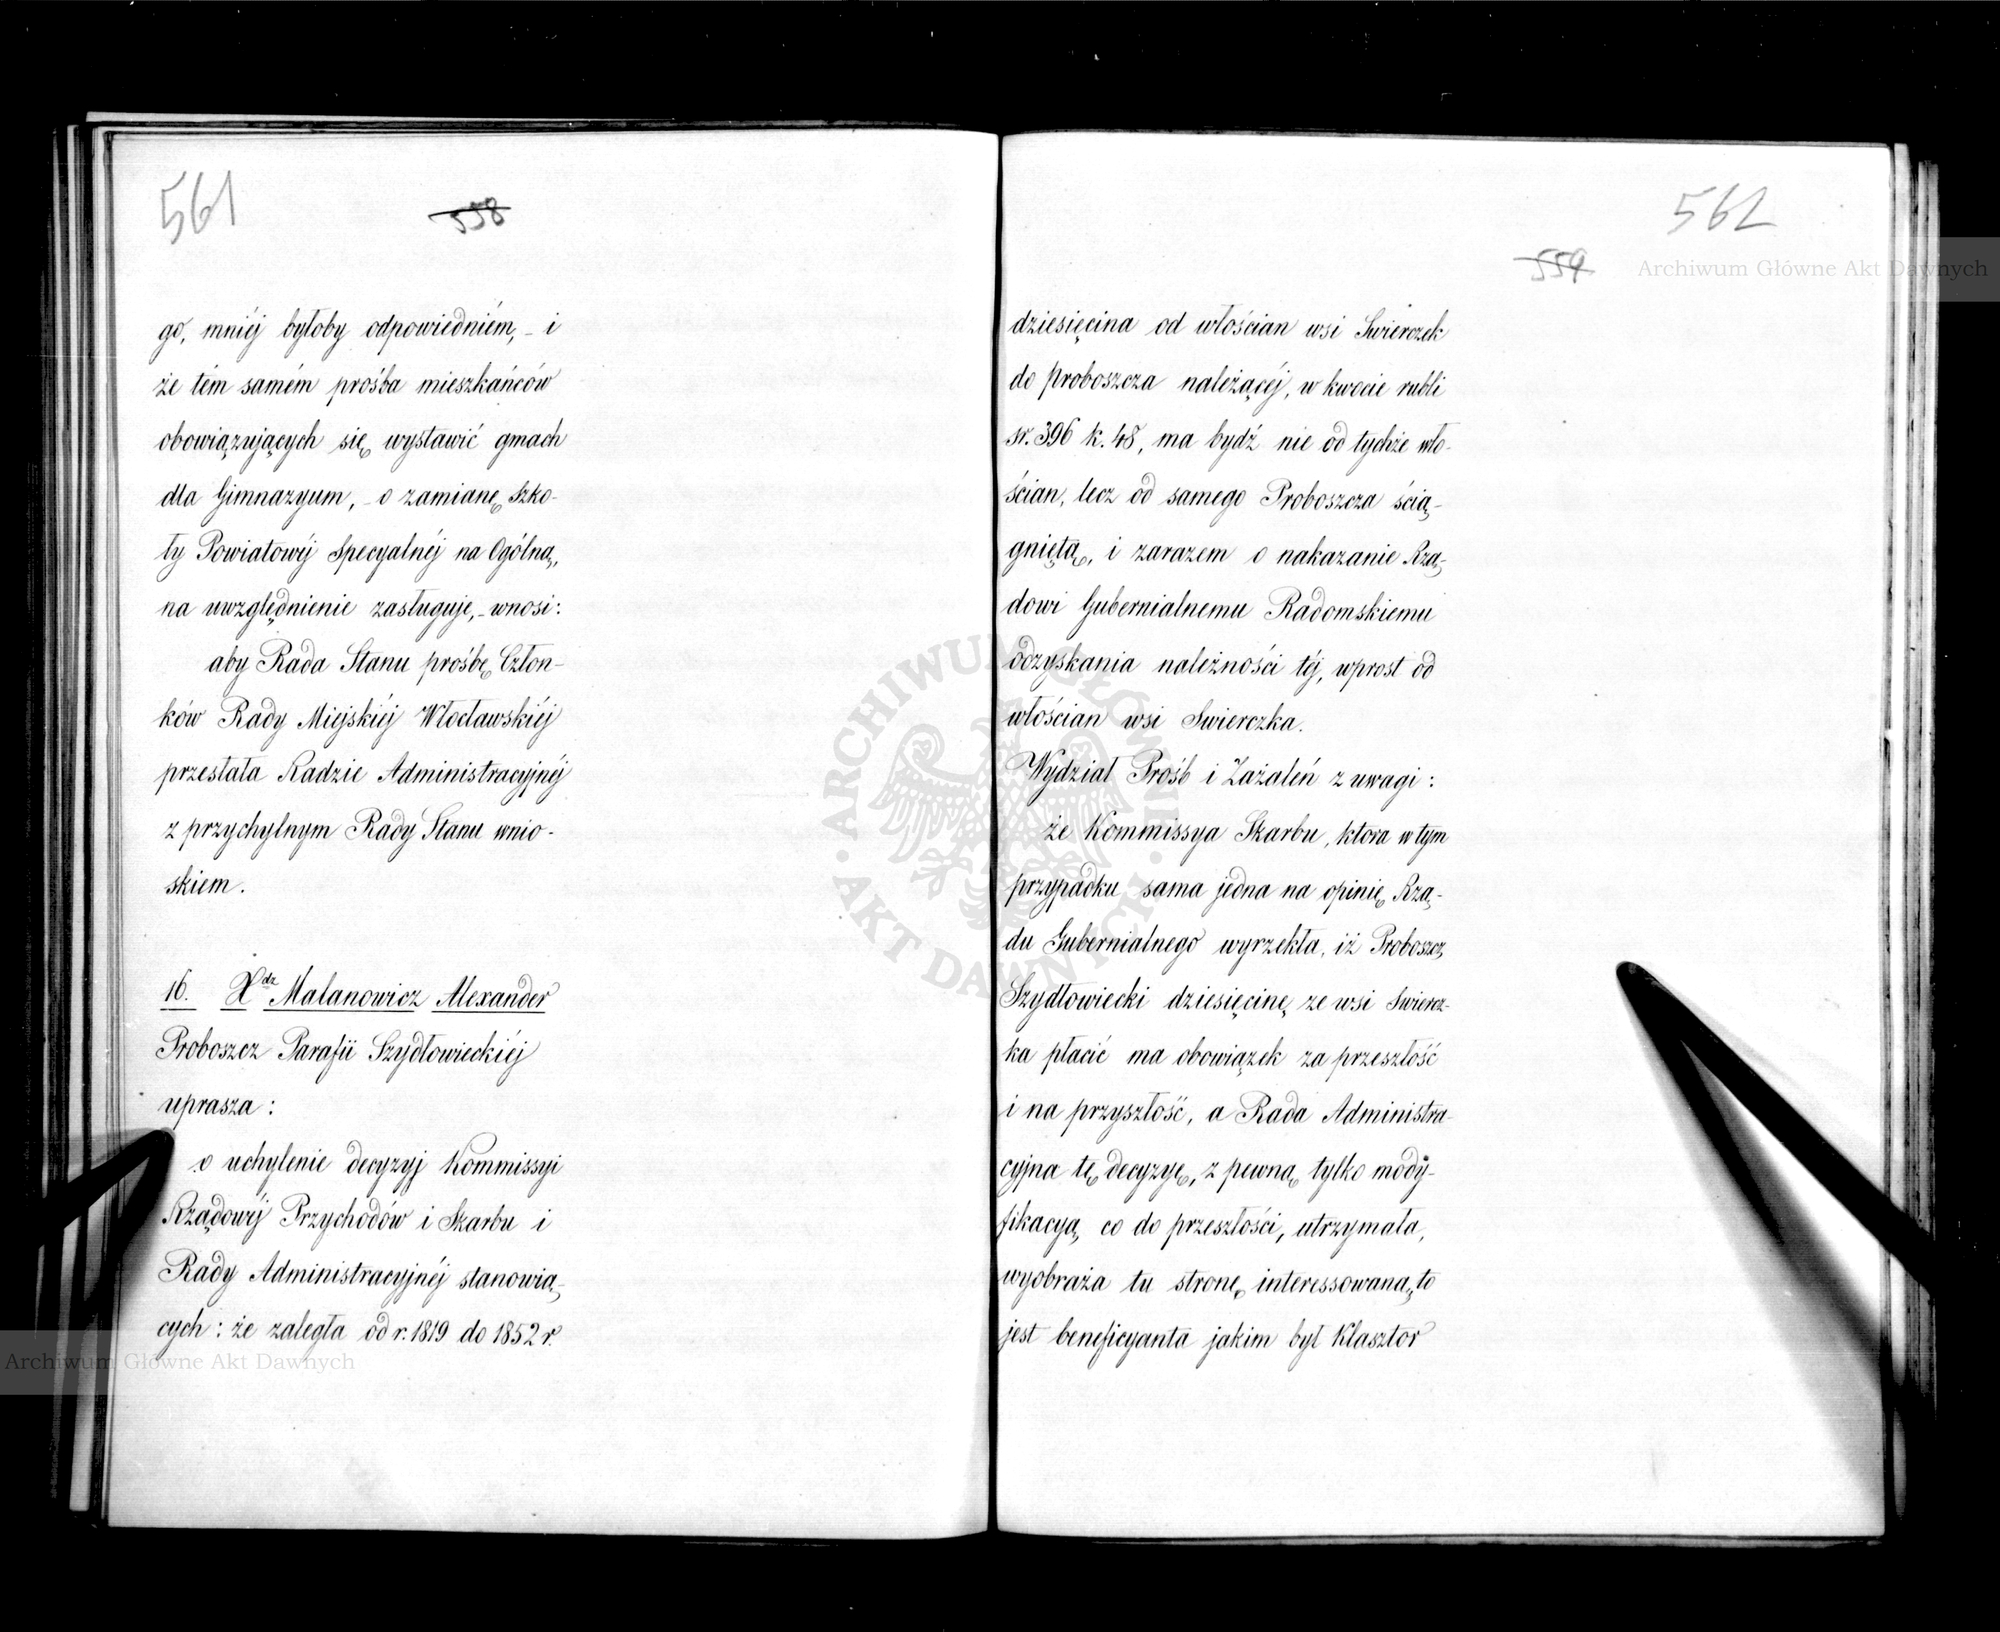 561
558
go, mniéj byłoby odpowiedniém, – i
że tém samém prośba mieszkańców
obowiązujących się wystawić gmach
dla Gimnazyum, – o zamianę Szko-
ły Powiatowéj Specyalnéj na Ogólną,
na uwzględnienie zasługuje, – wnosi:
aby Rada Stanu prośbę Człon-
ków Rady Miejskiéj Włocławskiéj
przesłała Radzie Administracyjnéj
z przychylnym Rady Stanu wnio-
skiem.
16. Xdz Malanowicz Alexander
Proboszcz Parafii Szydłowieckiéj
uprasza:
o uchylenie decyzyj Kommissyi
Rządowéj Przychodów i Skarbu i
Rady Administracyjnéj stanowią-
cych: że zaległa od r. 1819 do 1852 r.
562
559
dziesięcina od włościan wsi Swierczek
do proboszcza należącéj, w kwocie rubli
sr. 396 k. 48, ma bydź nie od tychże wło-
ścian, lecz od samego Proboszcza ścią-
gniętą, i zarazem o nakazanie Rzą-
dowi Gubernialnemu Radomskiemu
odzyskania należności téj, wprost od
włościan wsi Swierczka.
Wydział Prośb i Zażaleń z uwagi:
że Kommissya Skarbu, która w tym
przypadku sama jedna na opinię Rzą-
du Gubernialnego wyrzekła, iż Proboszcz
Szydłowiecki dziesięcinę ze wsi Swiercz-
ka płacić ma obowiązek za przeszłość
i na przyszłość, a Rada Administra-
cyjna tę decyzyę, z pewną tylko mody-
fikacyą co do przeszłości, utrzymała,
wyobraża tu stronę interessowaną, to
jest beneficyanta jakim był Klasztor
Archiwum Główne Akt Dawnych
Archiwum Główne Akt Dawnych
ARCHIWUM GŁÓWNE AKT DAWNYCH